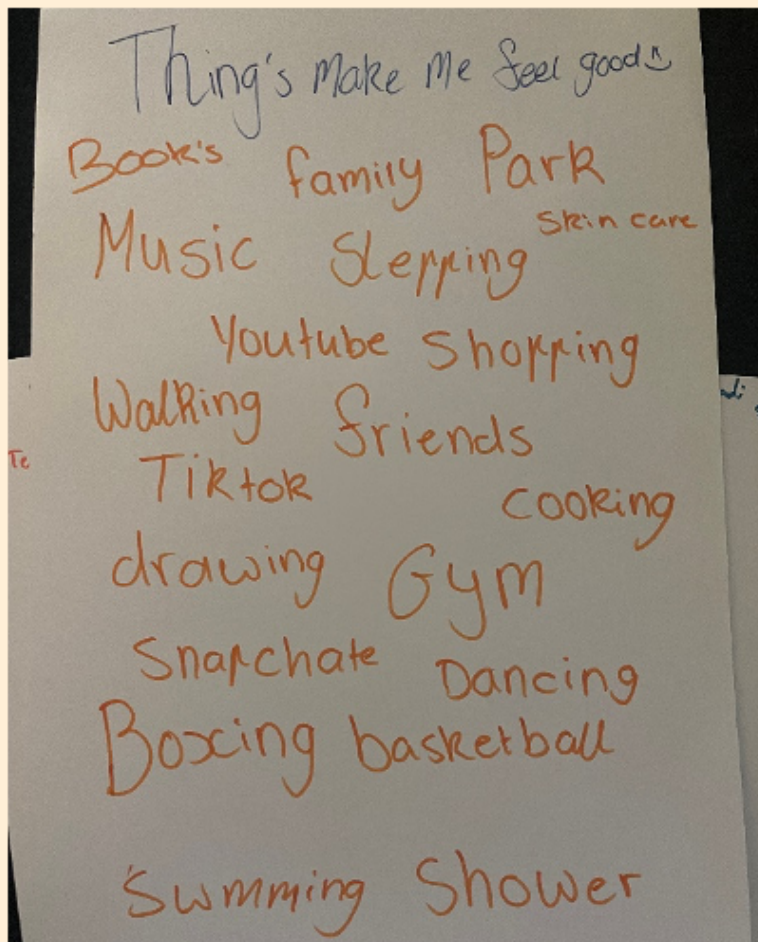 Thing's make me feel good
Book's family Park
Music Slepping Skin care
Youtube shopping
Walking friends
Te
Tiktok cooking
drawing Gym
Snapchate Dancing
Boxing basketball
Swmming Shower